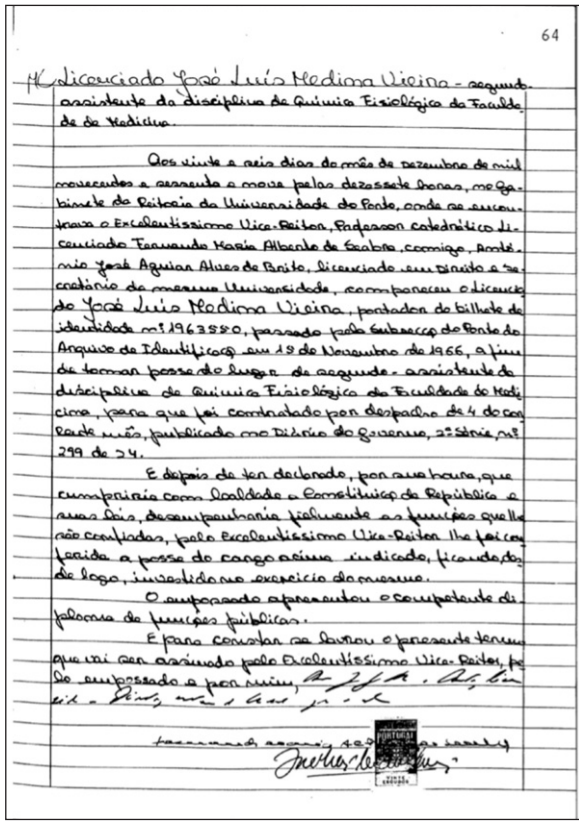 64
Licenciado José Luís Medina Vieira - segundo-
assistente da disciplina de Química Fisiológica da Faculda
de de Medicina.
Aos vinte e seis dias do mês de Dezembro de mil
novecentos e sessenta e nove pelas dezassete horas, no ga-
binete da Reitoria da Universidade do Porto, onde se encon-
trava o Excelentíssimo Vice-Reitor, Professor catedrático Li-
cenciado Fernando Maria Alberto de Seabra, comigo, Antó-
nio José Aguiar Alves de Brito, licenciado em Direito e se-
cretário da mesma Universidade, compareceu o Licencia
do José Luís Medina Vieira, portador do bilhete de
identidade nº 1963580, passado pela Subsecção do Porto do
Arquivo de Identificação em 15 de Novembro de 1966, a fim
de tomar posse do lugar de segundo-assistente da
disciplina de Química Fisiológica da Faculdade de Medi
cina, para que foi contratado por despacho de 4 do cor
rente mês, publicado no Diário do Governo, 2ª série, nº
299 de 24.
E depois de ter declarado, por sua honra, que
cumpriria com lealdade a Constituição da República e
suas leis, desempenharia fielmente as funções que lhe
são confiadas, pelo Excelentíssimo Vice-Reitor lhe foi con
ferida a posse do cargo acima indicado, ficando, des
de logo, investido no exercício do mesmo.
O empossado apresentou o competente di-
ploma de funções públicas.
E para constar se lavrou o presente termo
que vai ser assinado pelo Excelentíssimo Vice-Reitor, pe
lo empossado e por mim,
PORTUGAL
VINTE
ESCUDOS